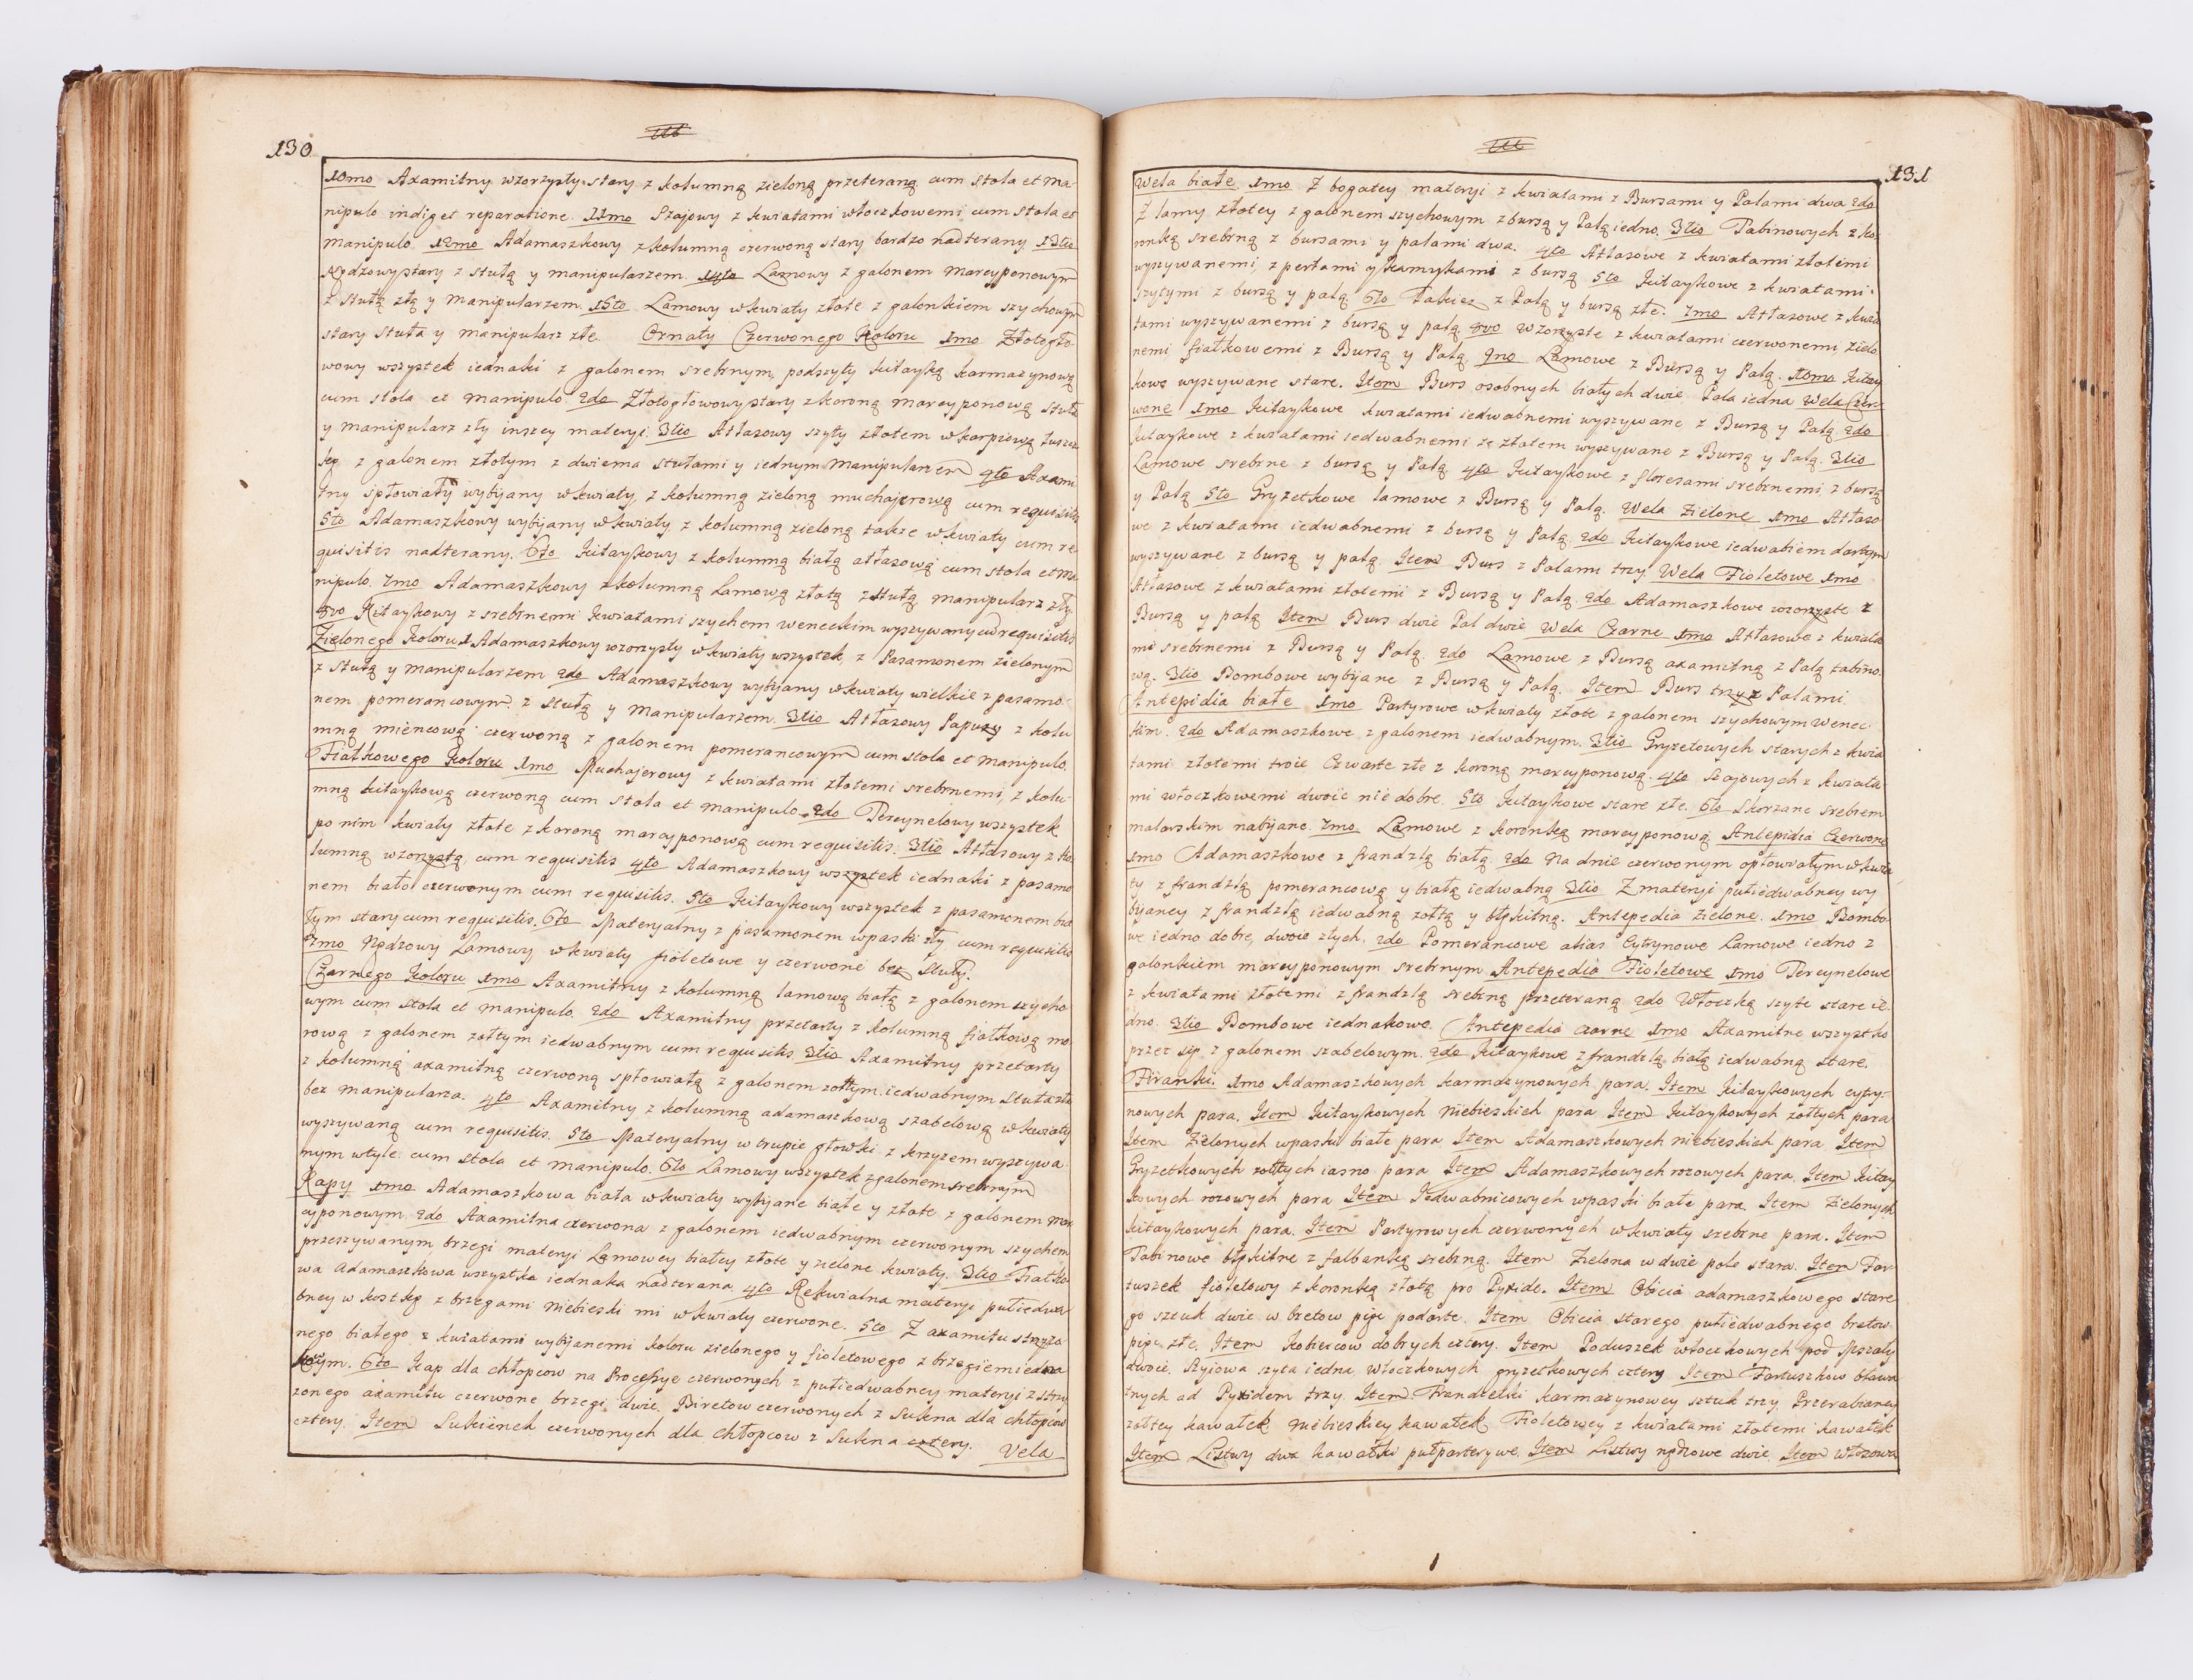 130
10mo Axamitny wzorzysty stary z kolumną zieloną przeteraną cum stola et ma-
nipulo indiget reparatione. 11mo Szajowy z kwiatami włoczkowemi cum stola et
manipulo. 12mo Adamaszkowy z kolumną czerwoną stary bardzo nadterany 13tio
rządzowy stary z stułą y manipularzem. 14to Lamowy z galonem marcyponowym
z stułą złą y manipularzem. 15to Lamowy w kwiaty złote z galonkiem szychowym
stary stuła y manipularz złe. Ornaty Czerwonego Koloru 1mo Złotogło-
wowy wszystek iednaki z galonem srebrnym, podszyty kitayką karmazynową
cum stola et manipulo. 2do Złotogłowowy stary z koroną marcyponową stuła
y manipularz zły inszey materyi. 3tio Atłasowy szyty złotem w karpiową łuszcz-
kę z galonem złotym z dwiema stułami y iednym manipularzem 4to Axami
tny spłowiały wybijany w kwiaty, z kolumną zieloną muchajerową cum requisitis
5to Adamaszkowy wybijany w kwiaty z kolumną zieloną także w kwiaty cum re
quisitis nadterany. 6to Kitaykowy z kolumną białą atłasową cum stola et ma
nipulo. 7mo Adamaszkowy z kolumną Lamową złotą z stułą manipularz zły
8vo Kitaykowy z srebrnemi kwiatami szychem weneckim wyszywany cum requisitis
Zielonego Koloru 1 Adamaszkowy wzorzysty w kwiaty wszystek, z Pasamonem zielonym
z stułą y manipularzem 2do Adamaszkowy wybijany w kwiaty wielkie z pasamo-
nem pomerancowym. z stułą y Manipularzem. 3tio Atłasowy Papuzy z kolu
mną mieńcową czerwoną z galonem pomerancowym cum stola et manipulo.
Fiałkowego Koloru 1mo Muchajerowy z kwiatami złotemi srebrnemi, z kolu-
mną kitaykową czerwoną cum stola et manipulo. 2do Tercynelowy wszystek
po nim kwiaty złote z koroną marcyponową cum requisitis. 3tio Atłasowy z ko
lumną wzorzystą, cum requisitis 4to Adamaszkowy wszystek iednaki z pasamo
nem biało czerwonym cum requisitis. 5to Kitaykowy wszystek z pasamonem bia
łym stary cum requisitis. 6to Materyalny z pasamonem w paski zły cum requisitis
7mo Rządzowy Lamowy w kwiaty fioletowe y czerwone bez stuły.
Czarnego Koloru 1mo Axamitny z kolumną lamową białą z galonem szycho
wym cum stola et manipulo. 2do Axamitny przetarty z kolumną fiałkową mo-
rową z galonem żołtym iedwabnym cum requisitis. 3tio Axamitny przetarty
z kolumną axamitną czerwoną spłowiałą z galonem żołtym iedwabnym Stuła zła
bez manipularza. 4to Axamitny z kolumną adamaszkową szabelową w kwiaty
wyszywaną cum requisitis. 5to Materyalny w trupie głowki z krzyżem wyszywa-
nym w tyle cum stola et manipulo. 6to Lamowy wszystek z galonem srebrnym
Kapy 1mo Adamaszkowa biała w kwiaty wybijane białe y złote z galonem mar
cyponowym. 2do Axamitna czerwona z galonem iedwabnym czerwonym szychem
przeszywanym brzegi materyi Lamowey białey złote y zielone kwiaty. 3tio Fiałko
wa adamaszkowa wszystka iednaka nadterana. 4to Rekwialna materyi pułiedwa
bney w kostkę z brzegami niebieski mi w kwiaty czerwone. 5to Z axamitu strzyżo-
nego białego z kwiatami wybijanemi koloru zielonego y fioletowego z brzegiem iedna
kim. 6to Kap dla chłopcow na Processye czerwonych z pułiedwabney materyi z strzy
żonego axamitu czerwone brzegi dwie. Biretow czerwonych z Sukna dla chłopcow
cztery. Item Sukienek czerwonych dla chłopcow z Sukna cztery. Vela
131
Wela białe 1mo Z bogatey materyi z kwiatami z Bursami y Palami dwa 2do
Z lamy złotey z galonem szychowym z bursą y Palą iedno. 3tio Tabinowych z ko-
ronką srebrną z bursami y palami dwa. 4to Atłasowe z kwiatami złotemi
wyszywanemi, z perłami y kamykami z bursą 5to Kitaykowe z kwiatami
szytymi z bursą y palą 6to Takież z Palą y bursą złe. 7mo Atłasowe z kwia
tami wyszywanemi z bursą y palą 8vo Wzorzyste z kwiatami czerwonemi zielo
nemi fiałkowemi z Bursą y Palą 9no Lamowe z Bursą y Palą. 10mo Kitay
kowe wyszywane stare. Item Burs osobnych białych dwie Pala iedna Wela Czer-
wone 1mo Kitaykowe kwiatami iedwabnemi wyszywane z Bursą y Palą 2do
Kitaykowe z kwiatami iedwabnemi ze złotem wyszywane z Bursą y Palą. 3tio
Lamowe srebrne z bursą y Palą 4to Kitaykowe z floresami srebrnemi z bursą
y Palą 5to Gryzetkowe lamowe z Bursą y Palą. Wela Zielone 1mo Atłaso
we z kwiatami iedwabnemi z bursą y Palą 2do Kitaykowe iedwabiem dartym
wyszywane z bursą y palą. Item Burs z Palami trzy. Wela Fioletowe 1mo
Atłasowe z kwiatami złotemi z Bursą y Palą. 2do Adamaszkowe wzorzyste z
Bursą y palą Item Burs dwie Pal dwie Wela Czarne 1mo Atłasowe z kwiata
mi srebrnemi z Bursą y Palą 2do Lamowe z Bursą axamitną z Palą tabino
wą. 3tio Bombowe wybijane z Bursą y Palą. Item Burs trzy z Palami
Antepidia białe 1mo Partyrowe w kwiaty złote z galonem szychowym wenec-
kim. 2do Adamaszkowe z galonem iedwabnym. 3tio Gryzetowych starych z kwia
tami złotemi troie Czwarte złe z koroną marcyponową. 4to Szajowych z kwiata
mi włoczkowemi dwoie nie dobre. 5to Kitaykowe stare złe. 6to Skorzane srebrem
malarskim nabijane. 7mo Lamowe z koronką marcyponową Antepidia Czerwone
1mo Adamaszkowe z frandzlą białą 2do Na dnie czerwonym opłowiałym w kwia
ty z frandzlą pomerancową y białą iedwabną 3tio Z materyi pułiedwabney wy
bijaney z frandzlą iedwabną żołtą y błękitną. Antepedia Zielone. 1mo Bombo
we iedno dobre, dwoie złych, 2do Pomerancowe alias Cytrynowe Lamowe iedno z
galonkiem marcyponowym srebrnym Antepedia Fioletowe 1mo Tercynelowe
z kwiatami złotemi z frandzlą srebrną przeteraną 2do Włoczką szyte stare ie-
dno. 3tio Bombowe iednakowe. Antepedia czarne 1mo Axamitne wszystko
przez się z galonem szabelowym. 2do Kitaykowe z frandzlą białą iedwabną stare.
Firanki. 1mo Adamaszkowych karmazynowych para. Item Kitaykowych cytry-
nowych para. Item Kitaykowych niebieskich para Item Kitaykowych żołtych para
Item Zielonych w paski białe para Item Adamaszkowych niebieskich para Item
Gryzetkowych żołtych iasno para Item Adamaszkowych rożowych para. Item Kitay
kowych rożowych para Item Iedwabnicowych w paski białe para Item Zielonych
kitaykowych para. Item Partyrowych czerwonych w kwiaty srebrne para. Item
Tabinowe błękitne z falbanką srebrną. Item Zielona w dwie pole stara. Item Far
tuszek fioletowy z koronką złotą pro Pyxide. Item Obicia adamaszkowego stare
go sztuk dwie w bretow pięć podarte. Item Obicia starego pułiedwabnego bretow
pięć złe. Item Kobiercow dobrych cztery. Item Poduszek włoczkowych pod Mszały
dwoie, Ryiowa szyta iedna, Włoczkowych gryzetkowych cztery Item Fartuszkow bława
tnych ad Pyxidem trzy. Item Frandzelki karmazynowey sztuk trzy Przerabianey
żołtey kawałek niebieskiey kawałek Fioletowey z kwiatami złotemi kawałek
Item Listwy dwa kawałki pułparterywe. Item Listwy rządzowe dwie. Item Włosowa